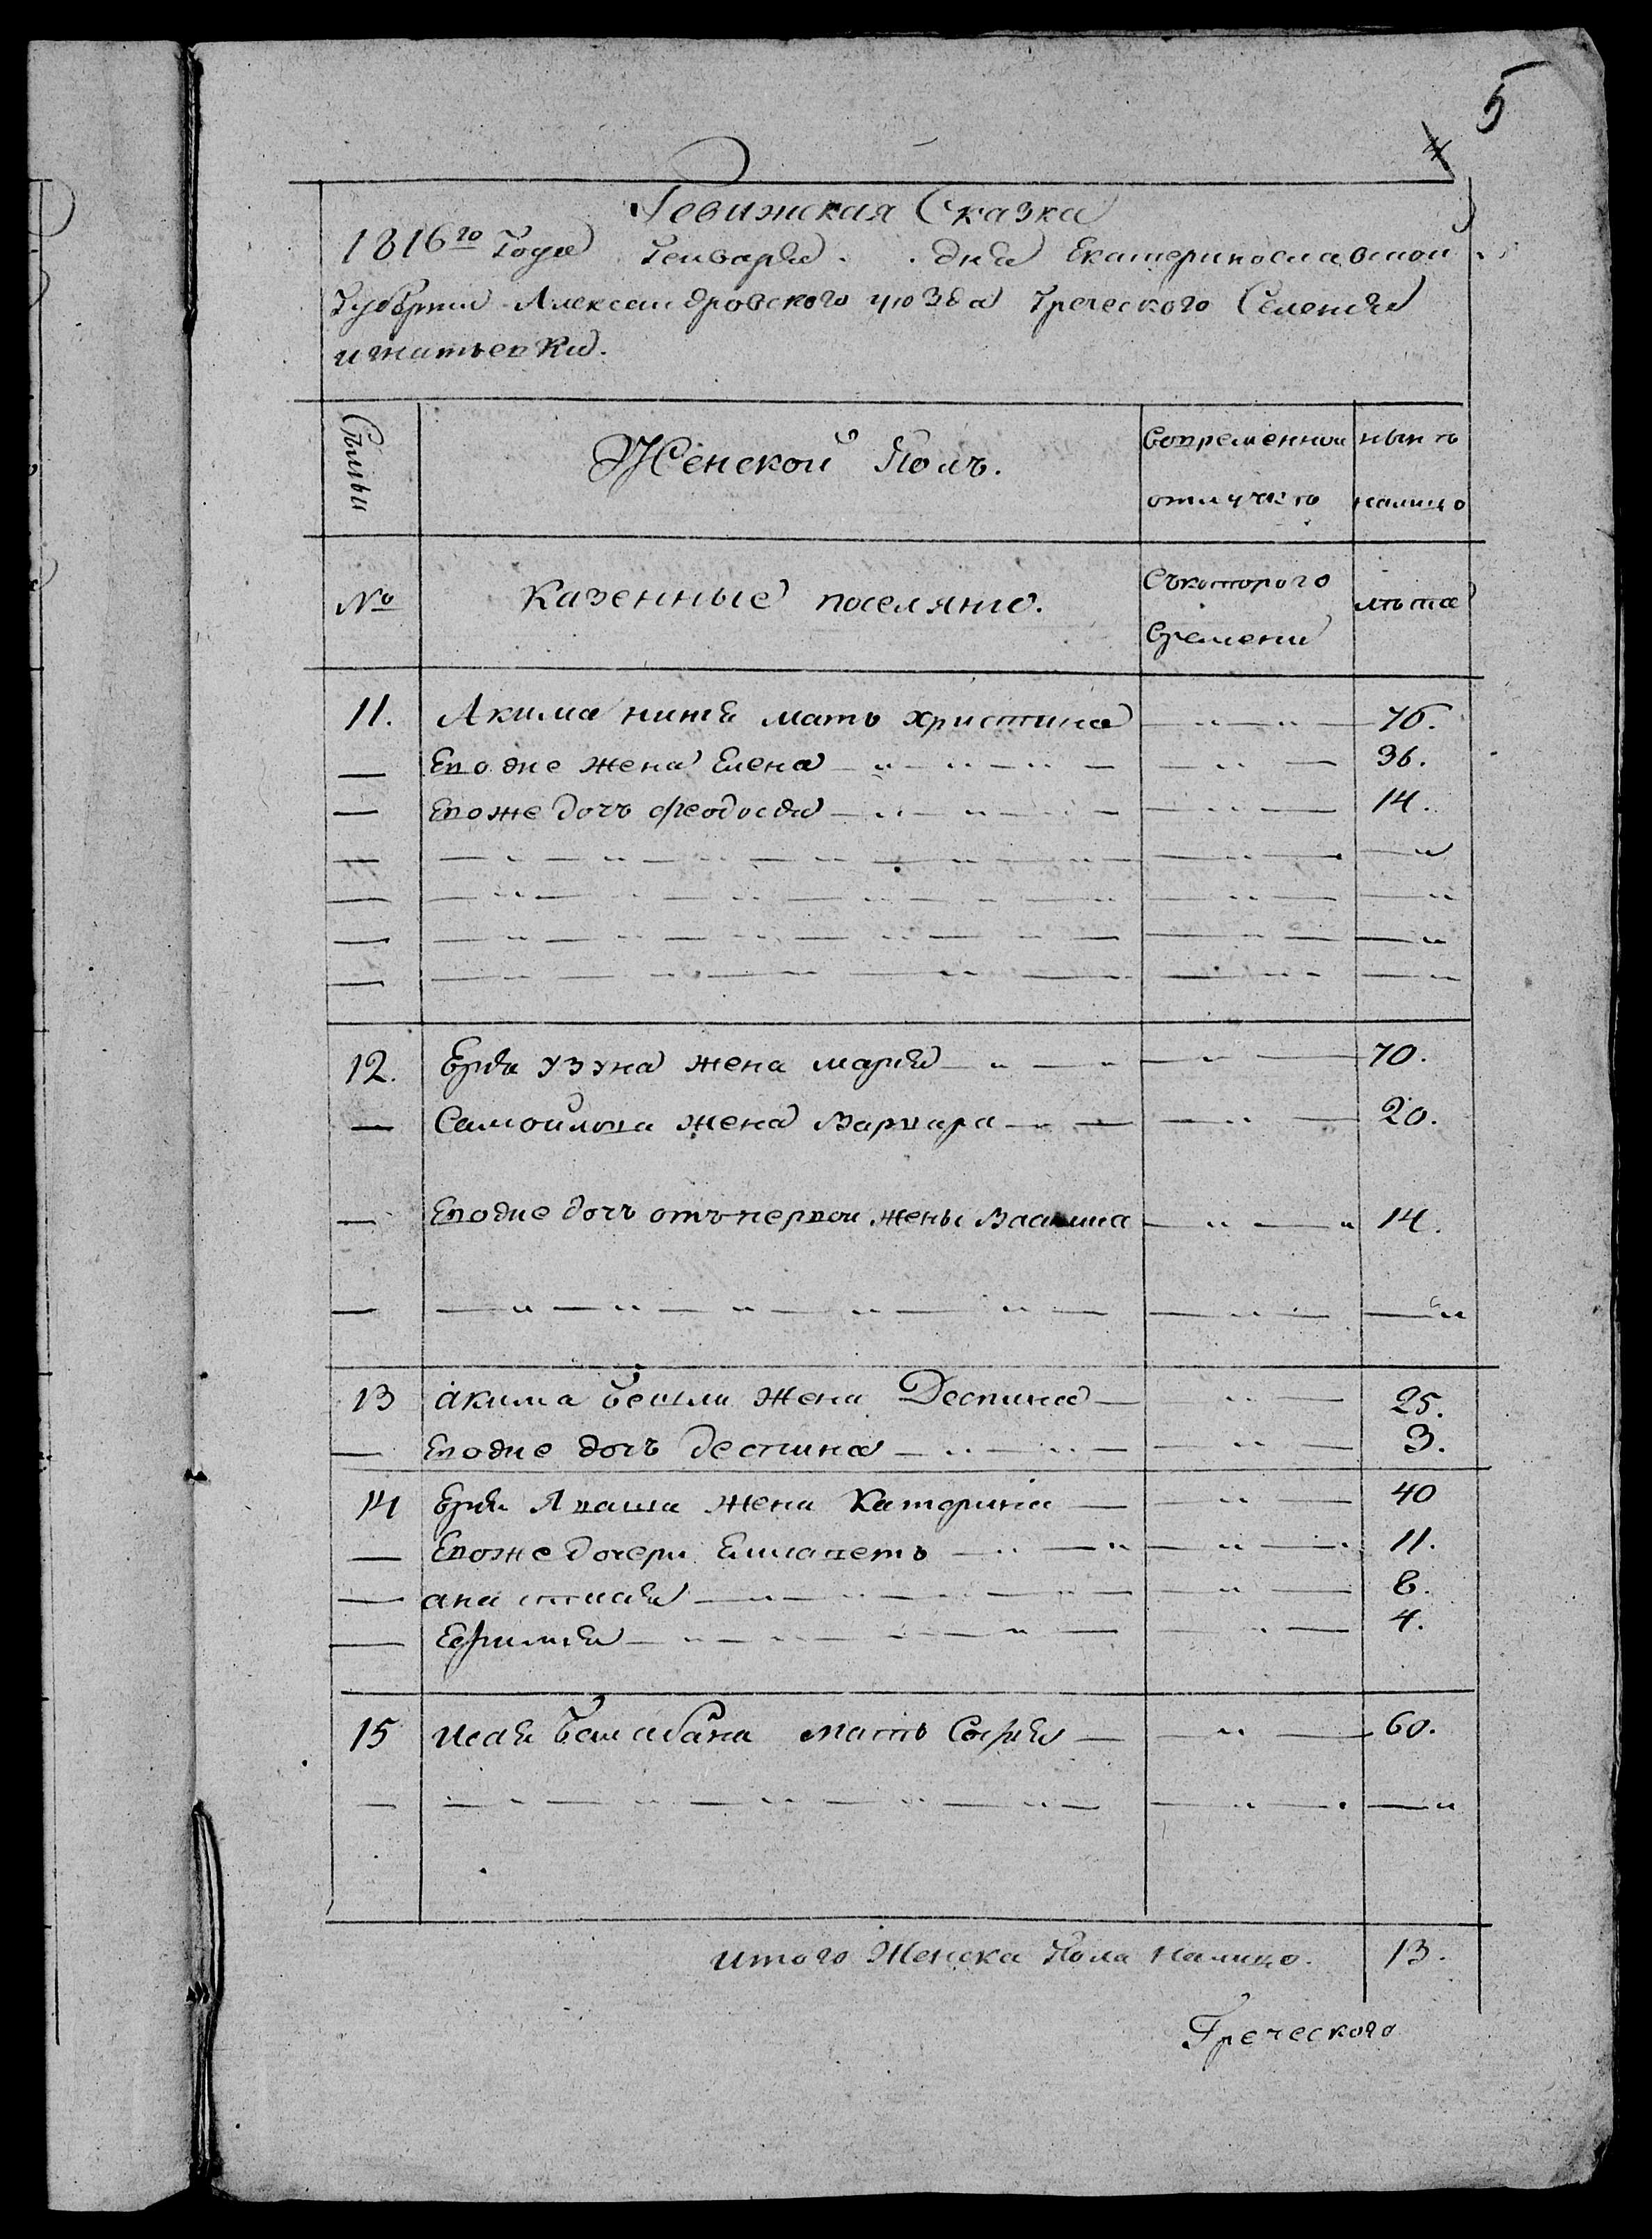 5
4
Ревижская Сказка
1816го Года Генваря . . дня Екатеринославской
Губернии Александровского уѣзда Греческого Селенія
игнатьевки.
Семьи
Женской Полъ.
Вовременной отлучкѣ
нынѣ налицо
№
Казенные поселянѣ.
Съкоторого Времени
лѣта
11. Акима мать христина — „ — „ — 76.
— Евоже жена Елена — „ — „ — 36.
— Евоже дочъ феодосія — „ — „ — 14.
12. Ерія Узуна жена марія — „ — „ — 70.
— Самойлова жена Варвара — „ — 20.
— Евоже дочъ отъпервои жены — „ — „ 14.
13 акима жена Деспина — „ — 25.
— Евоже дочъ деспина — „ — „ — 3.
14 Ерія жена Катерина — „ — 40
— Евоже дочери Елисаветь — „ — „ 11.
— анастасія — „ — „ — 8.
— Ефимія — „ — „ — 4.
15 Исаія мать Софія — „ — 60.
итого Женска Пола налицо. 13.
Греческого